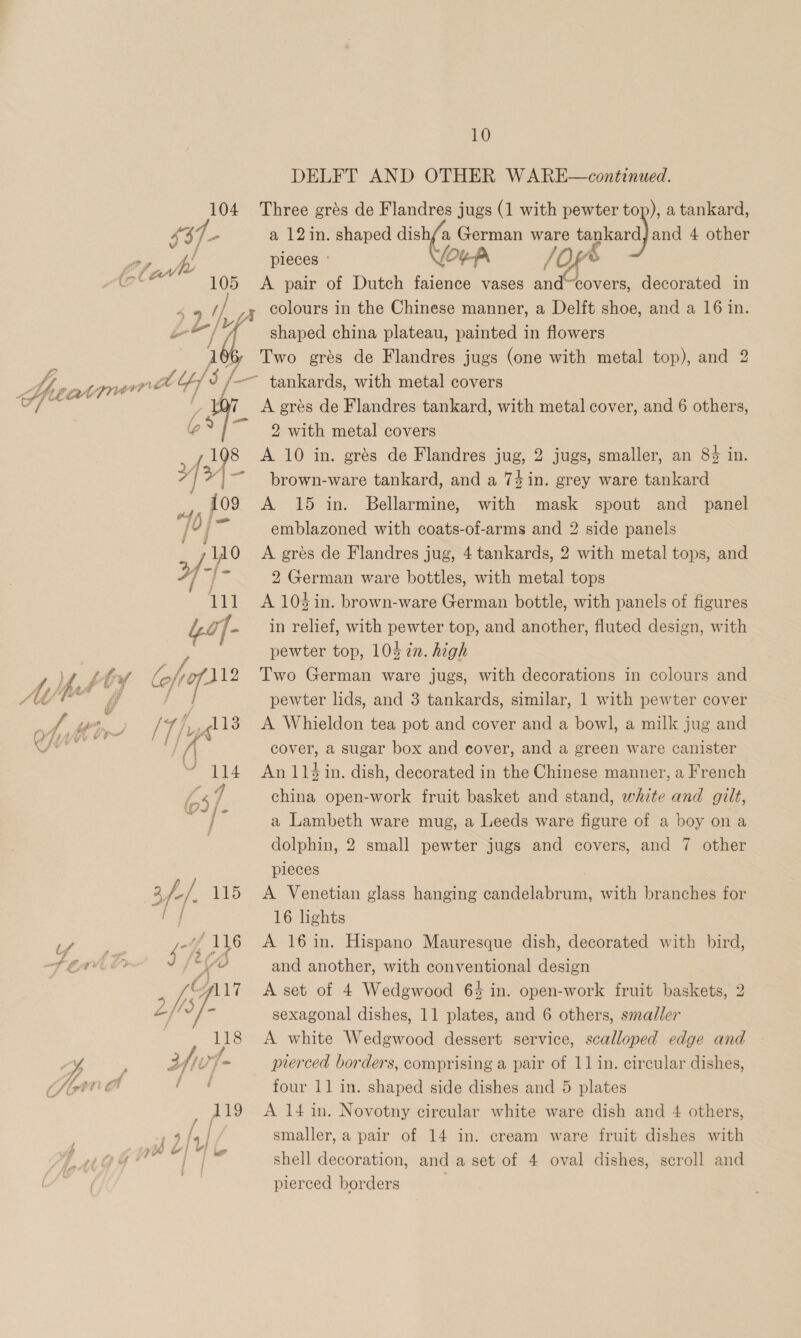 10
DELFT AND OTHER WARE—continued.
104 Three grès de Flandres jugs (1 with pewter top), a tankard,
a 12 in. shaped dish, a German ware tankard, and 4 other
pieces
105 A pair of Dutch faience vases and covers, decorated in
colours in the Chinese manner, a Delft shoe, and a 16 in.
shaped china plateau, painted in flowers
106 Two grès de Flandres jugs (one with metal top), and 2
tankards, with metal covers
107 A grès de Flandres tankard, with metal cover, and 6 others,
2 with metal covers
108 A 10 in. grès de Flandres jug, 2 jugs, smaller, an 8½ in.
brown-ware tankard, and a 7½ in. grey ware tankard
109 A 15 in. Bellarmine, with mask spout and panel
emblazoned with coats-of-arms and 2 side panels
110 A grès de Flandres jug, 4 tankards, 2 with metal tops, and
2 German ware bottles, with metal tops
111 A 10½ in. brown-ware German bottle, with panels of figures
in relief, with pewter top, and another, fluted design, with
pewter top, 10½ in. high
112 Two German ware jugs, with decorations in colours and
pewter lids, and 3 tankards, similar, 1 with pewter cover
113 A Whieldon tea pot and cover and a bowl, a milk jug and
cover, a sugar box and cover, and a green ware canister
114 An 11½ in. dish, decorated in the Chinese manner, a French
china open-work fruit basket and stand, white and gilt,
a Lambeth ware mug, a Leeds ware figure of a boy on a
dolphin, 2 small pewter jugs and covers, and 7 other
pieces
115 A Venetian glass hanging candelabrum, with branches for
16 lights
116 A 16 in. Hispano Mauresque dish, decorated with bird,
and another, with conventional design
117 A set of 4 Wedgwood 6½ in. open-work fruit baskets, 2
sexagonal dishes, 11 plates, and 6 others, smaller
118 A white Wedgwood dessert service, scalloped edge and
pierced borders, comprising a pair of 11 in. circular dishes,
four 11 in. shaped side dishes and 5 plates
119 A 14 in. Novotny circular white ware dish and 4 others,
smaller, a pair of 14 in. cream ware fruit dishes with
shell decoration, and a set of 4 oval dishes, scroll and
pierced borders